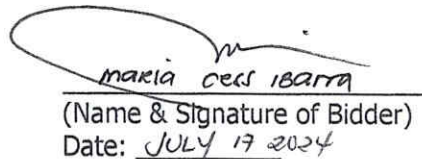 maria cess ibarra
(Name & Signature of Bidder)
Date: JULY 17 2024